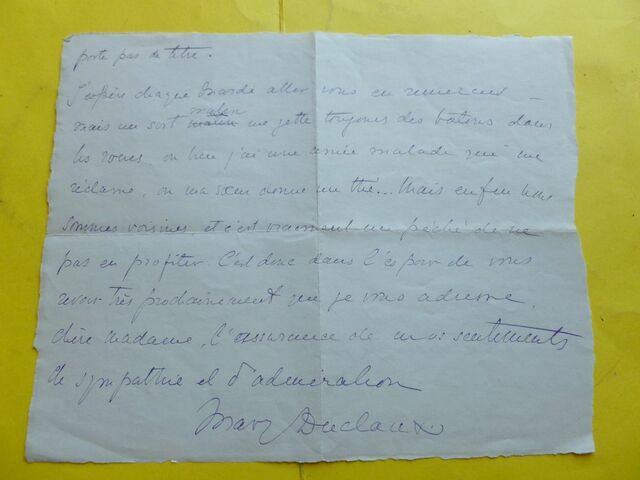 porte pas de titre.
J'espère chaque Mardi aller vous en remercier –
mais un sort malin malin me jette toujours des bâtons dans
les roues, ou bien j'ai une amie malade qui me
réclame, ou ma sœur donne un thé... Mais enfin nous
sommes voisines, et c'est vraiment un péché de ne
pas en profiter. C'est donc dans l'espoir de vous
revoir très prochainement que je vous adresse,
chère Madame, l'assurance de mes sentiments
de sympathie et d'admiration
Mary Duclaux.